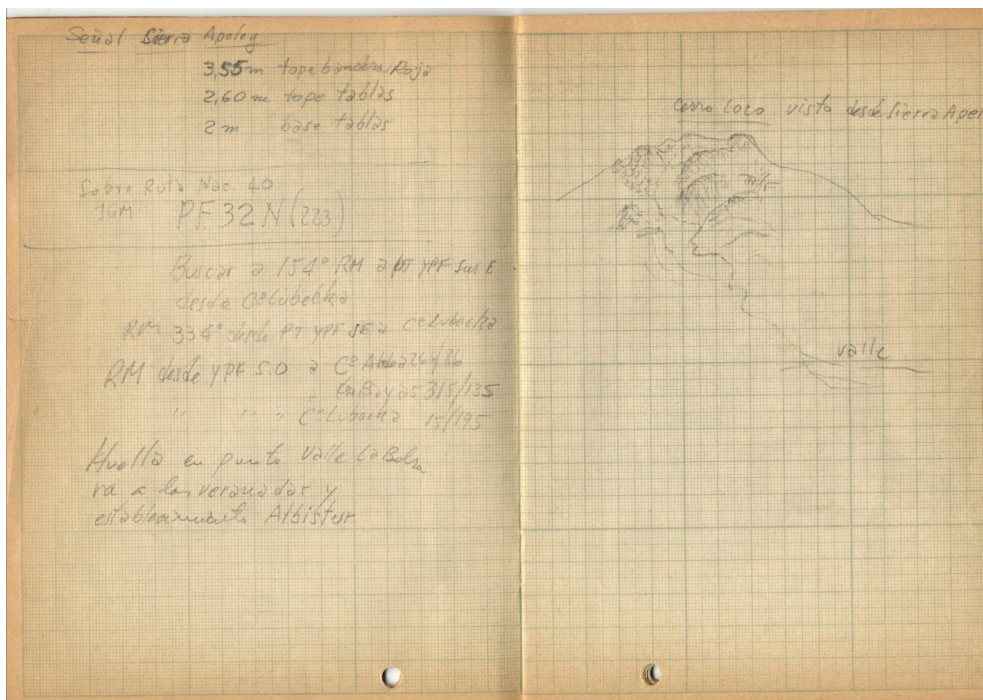 Señal Sierra Apeleg
3,55 m tope bandera Roja
2,60 m tope tablas
2 m base tablas
Sobre Ruta Nac. 40
IGM PF 32 N (223)
Buscar a 154° RM a PT YPF Sur E
desde Cº Lubecka
RM 334° desde PT YPF SE a Cº Lubecka
RM desde YPF S.O a Cº
315/135
" " " Cº Lubecka 15/195
Huella en punto Valle La Bolsa
va a las veranadas y
establecimiento Albistur
Cerro Loco visto desde Sierra Apel
valle
valle